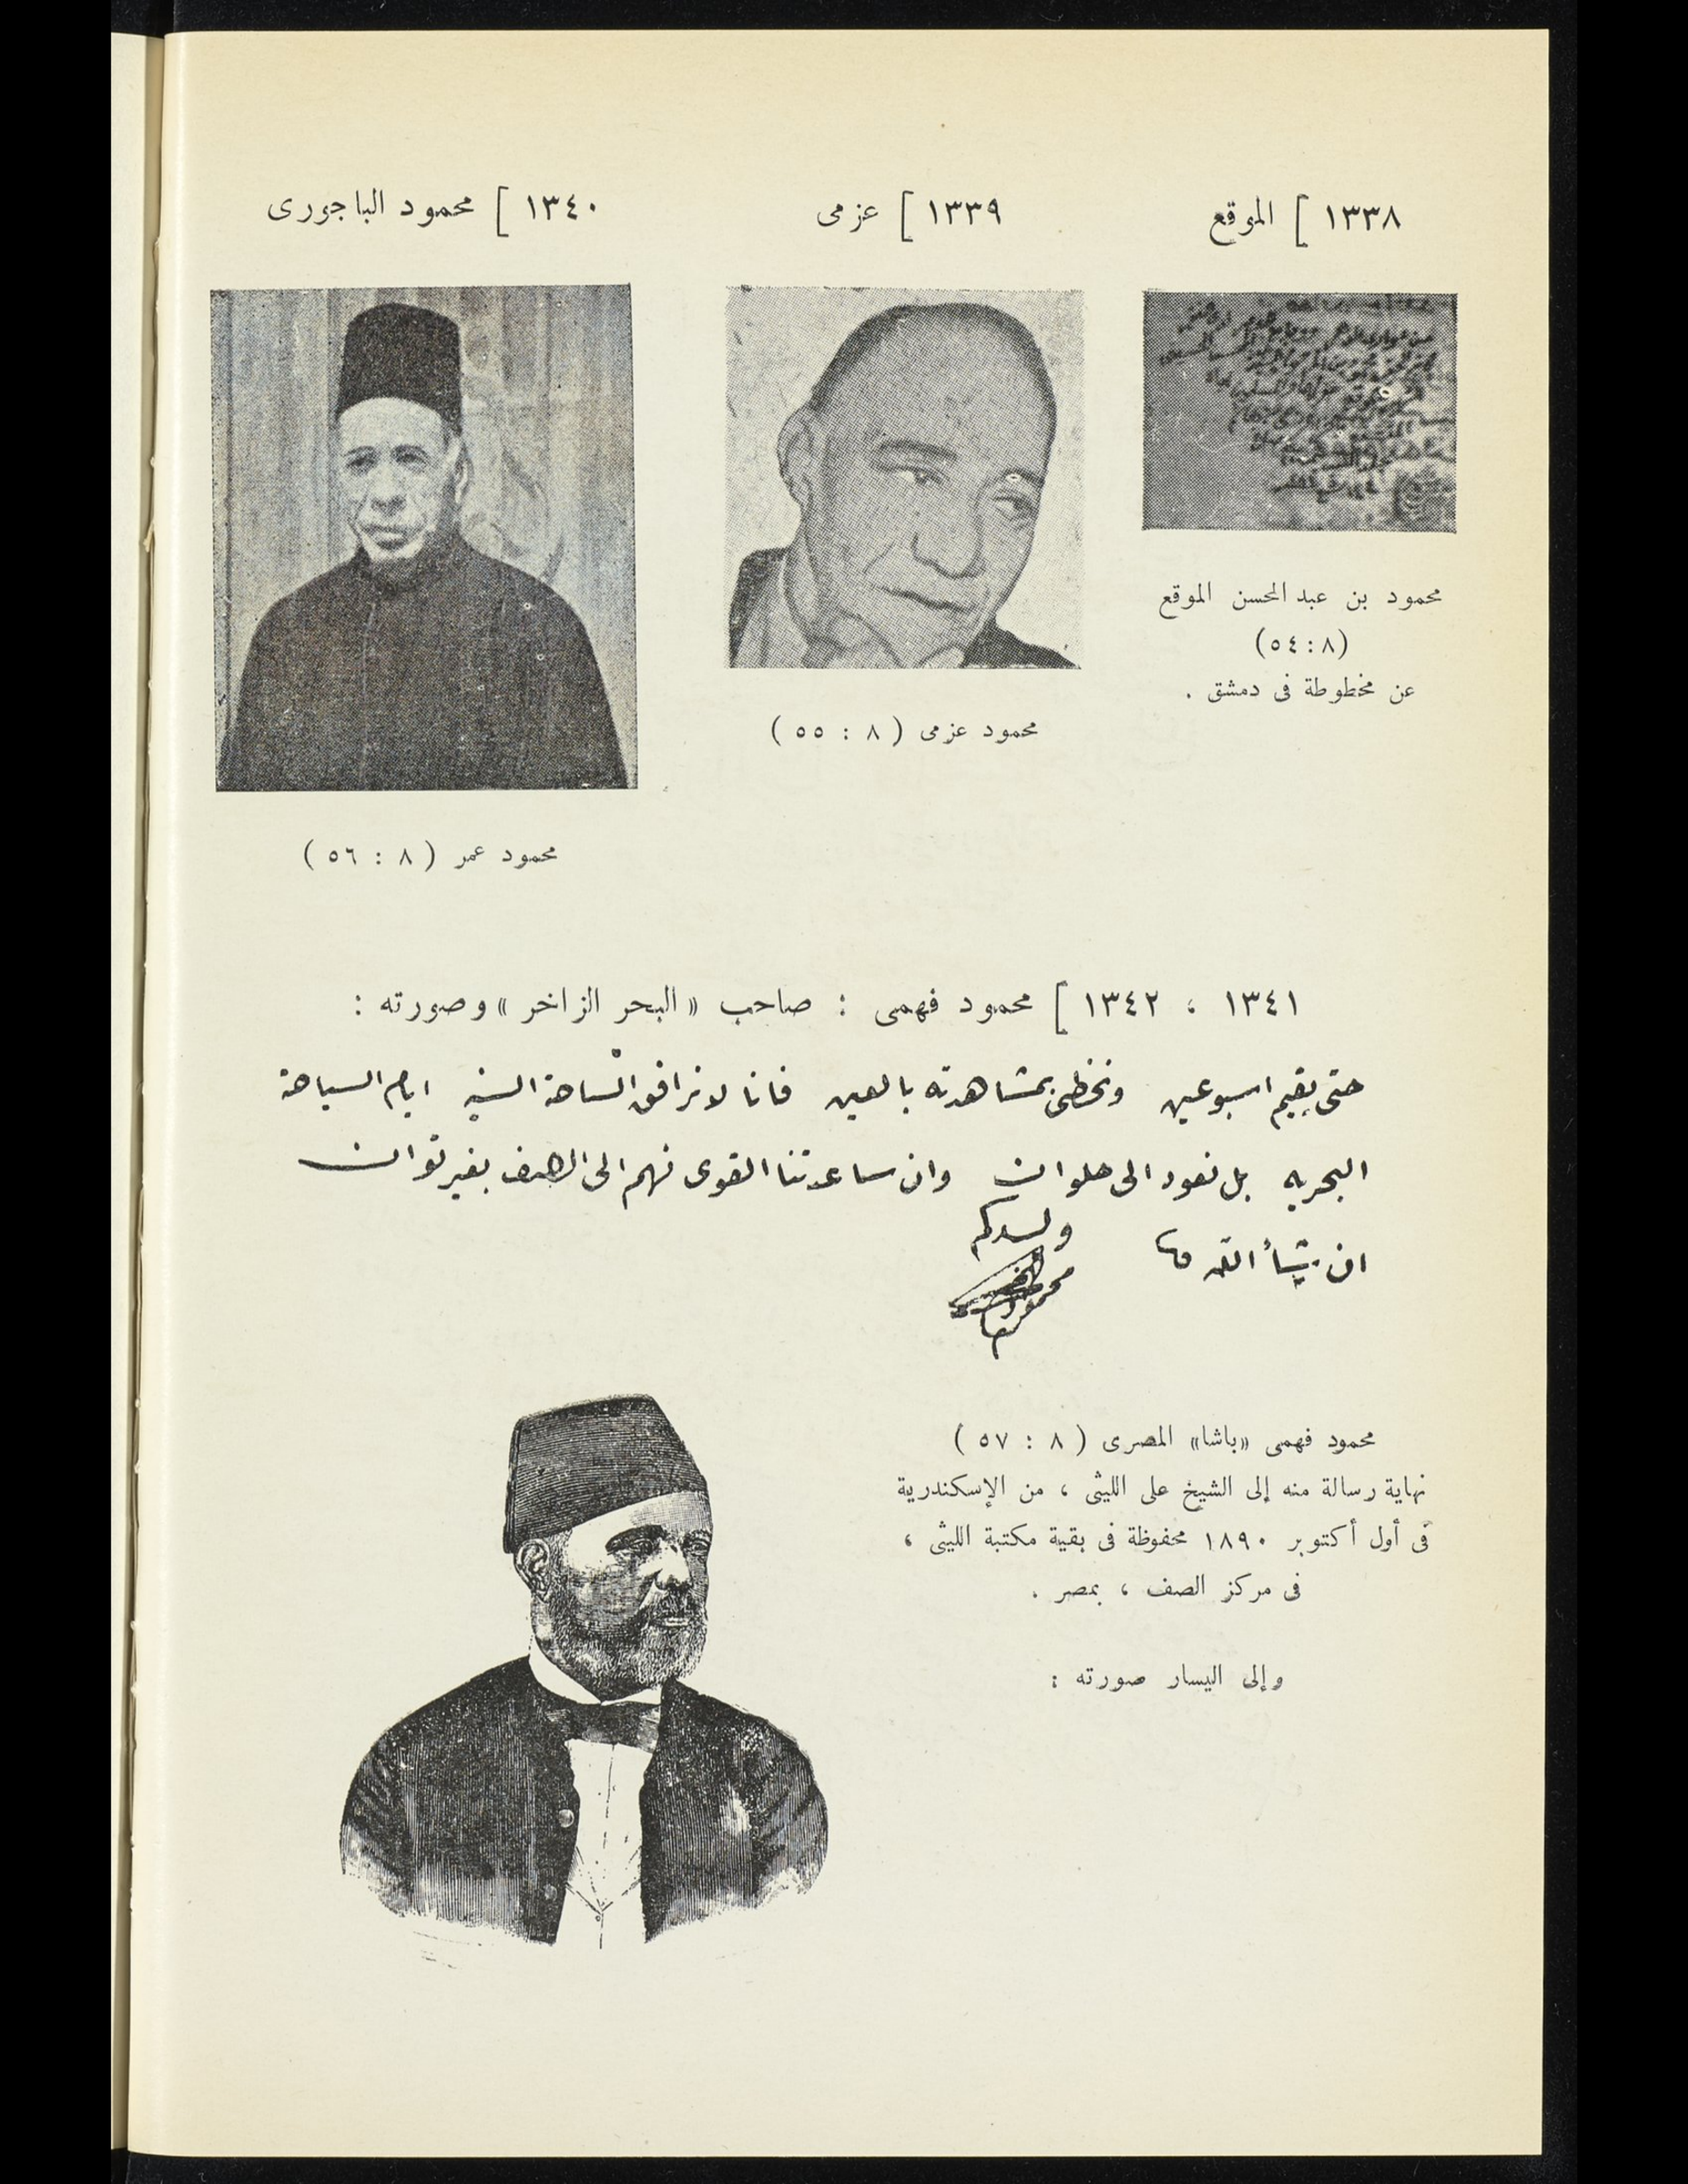 ١٣٣٨ ] الموقع
١٣٣٩ ] عزمى
١٣٤٠ ] محمود الباجورى
محمود بن عبد المحسن الموقع
(٨ : ٥٤)
عن مخطوطة فى دمشق .
محمود عزمى ( ٨ : ٥٥ )
محمود عمر ( ٨ : ٥٦ )
١٣٤١ ، ١٣٤٢ ] محمود فهمى : صاحب «البحر الزاخر» وصورته :
حتى يقيم اسبوعين ونحظى بمشاهدته بالعين فانا لا نرافق الساحة السنيه ايام السياحة
البحريه بل نعود الى حلوان وان ساعدتنا القوى نهم الى الصف بغير توان
ان يشأ الله
ولدكم
محمود فهمى
محمود فهمى «باشا» المصرى ( ٨ : ٥٧ )
نهاية رسالة منه إلى الشيخ على الليثى ، من الإسكندرية
فى أول أكتوبر ١٨٩٠ محفوظة فى بقية مكتبة الليثى ،
فى مركز الصف ، بمصر .
وإلى اليسار صورته :